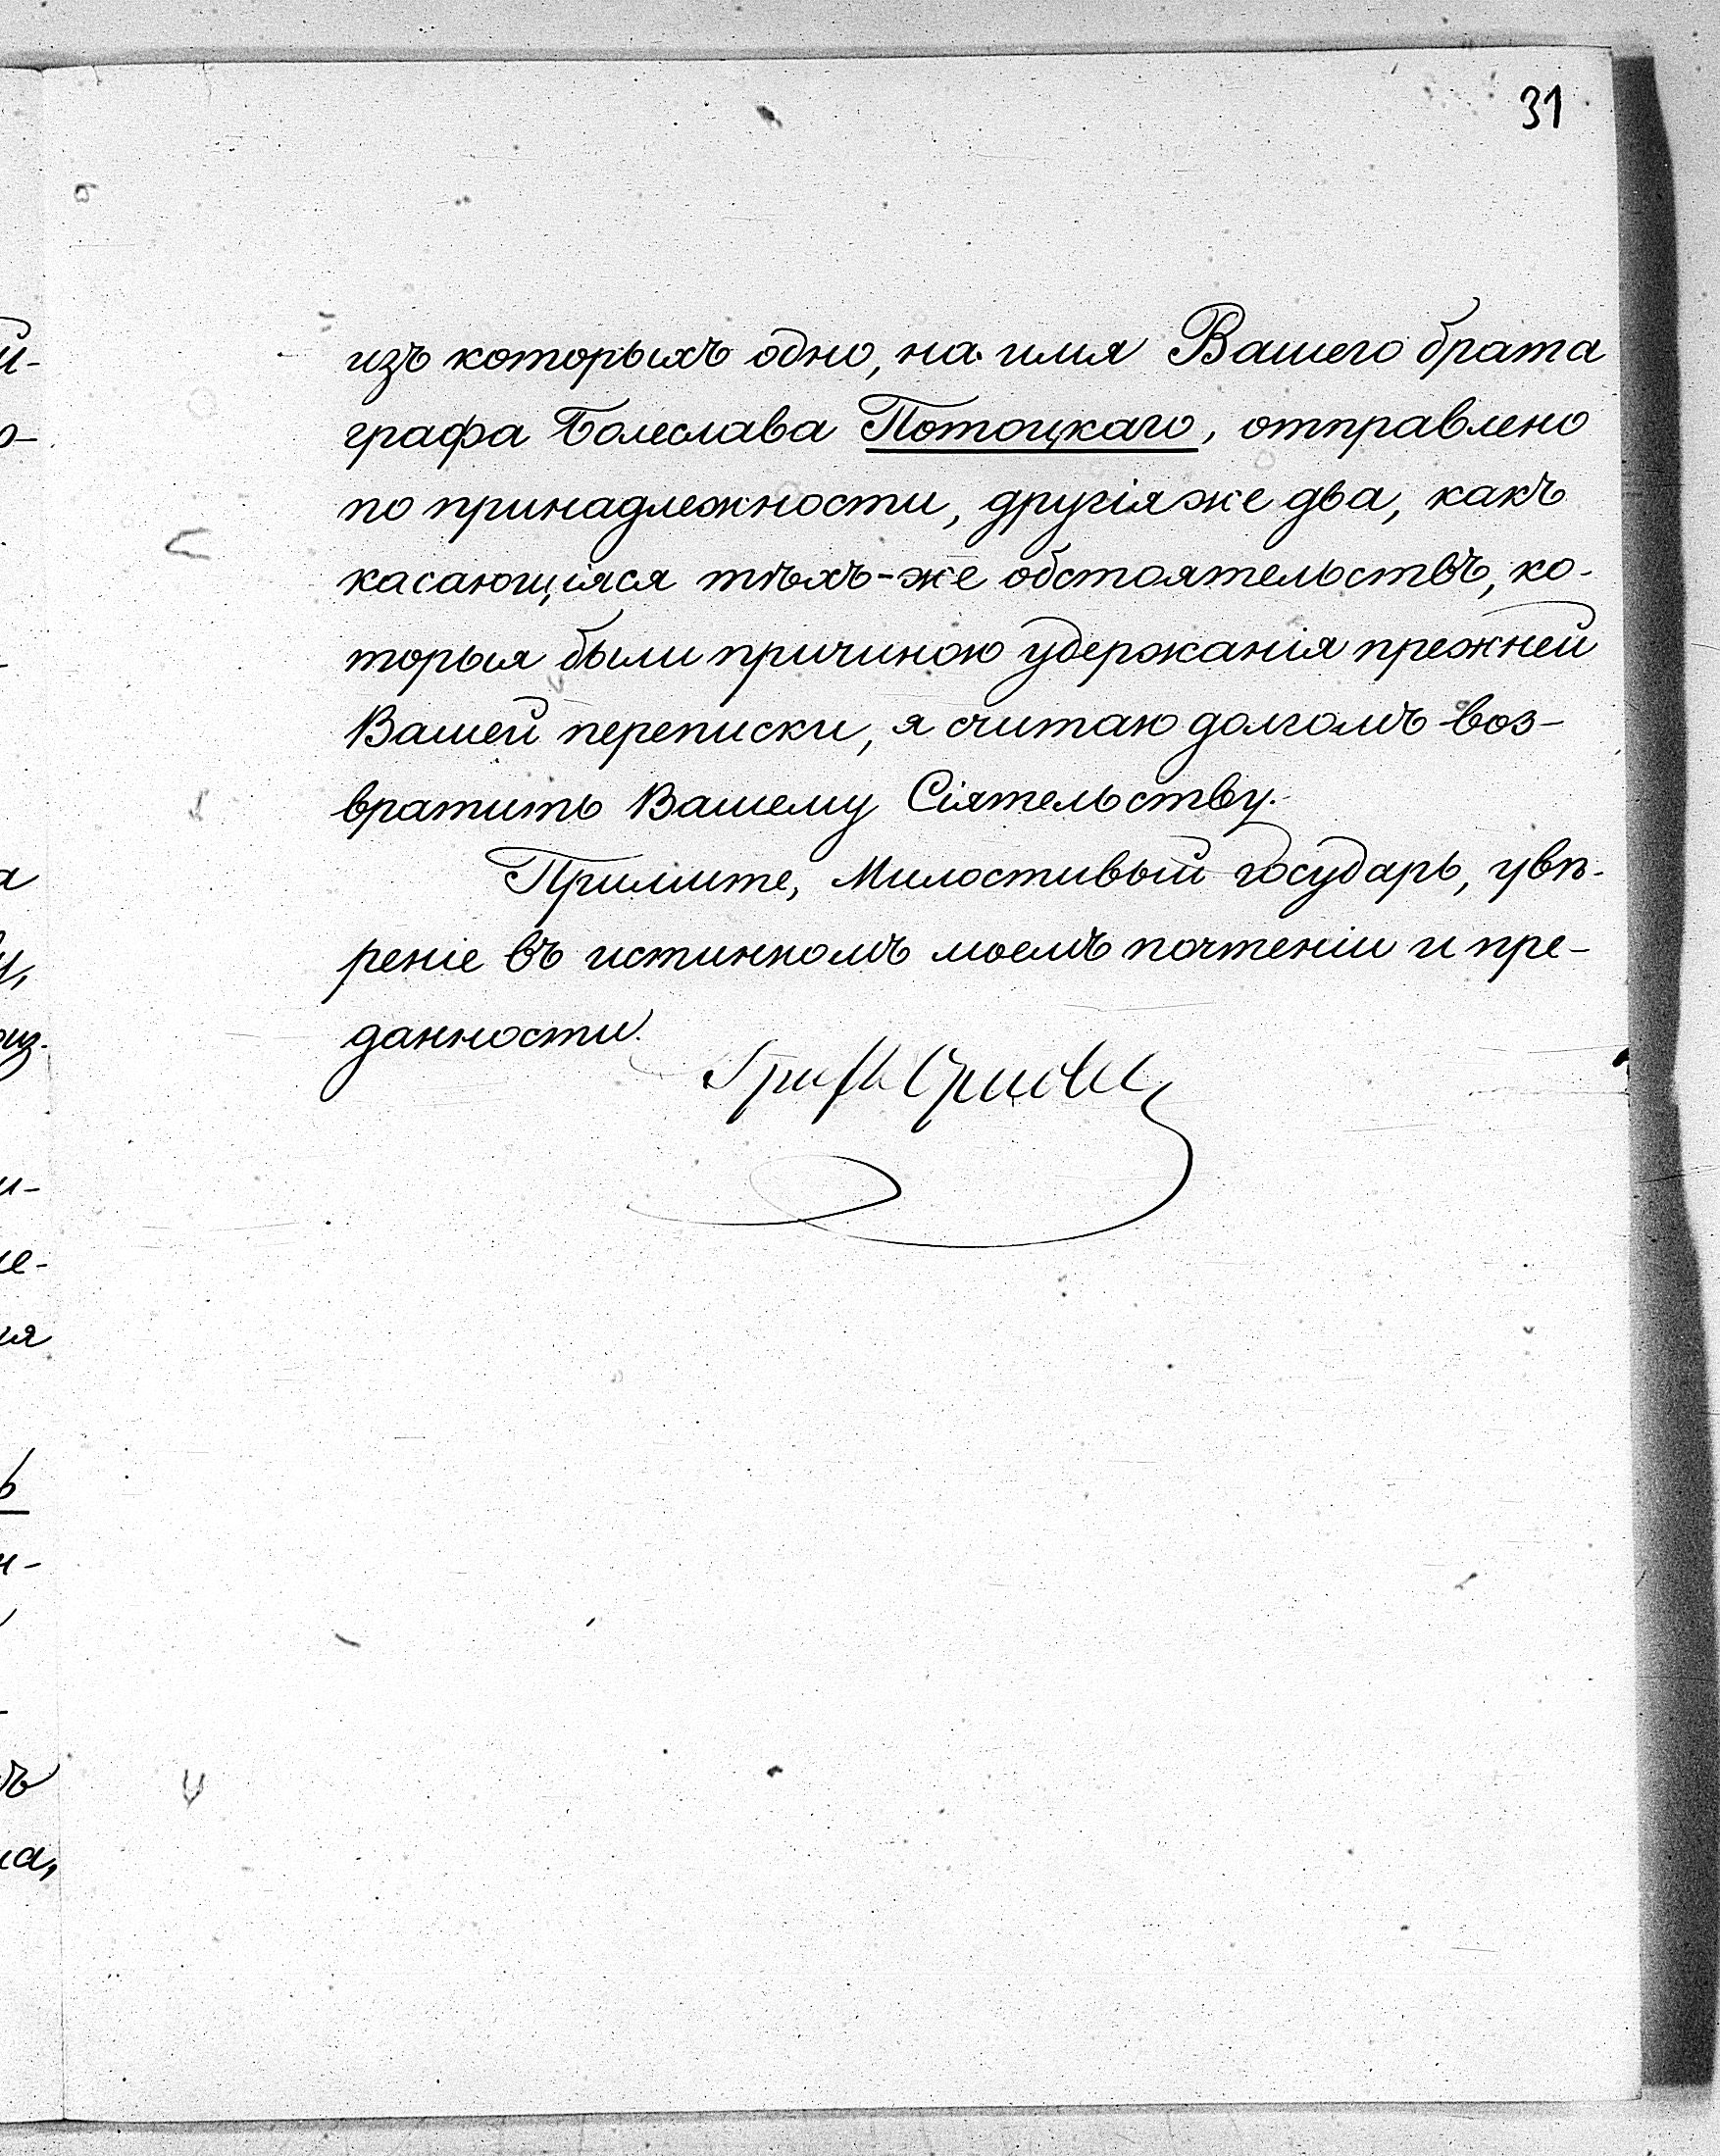 31
изъ которыхъ одно, на имя Вашего брата
графа Болеслава Потоцкаго, отправлено
по принадлежности, другія же два, какъ
касающіяся тѣхъ-же обстоятельствъ, ко-
торыя были причиною удержанія прежней
Вашей переписки, я считаю долгомъ воз-
вратить Вашему Сіятельству.
Примите, Милостивый государь, увѣ-
реніе въ истинномъ моемъ почтеніи и пре-
данности.
Графъ